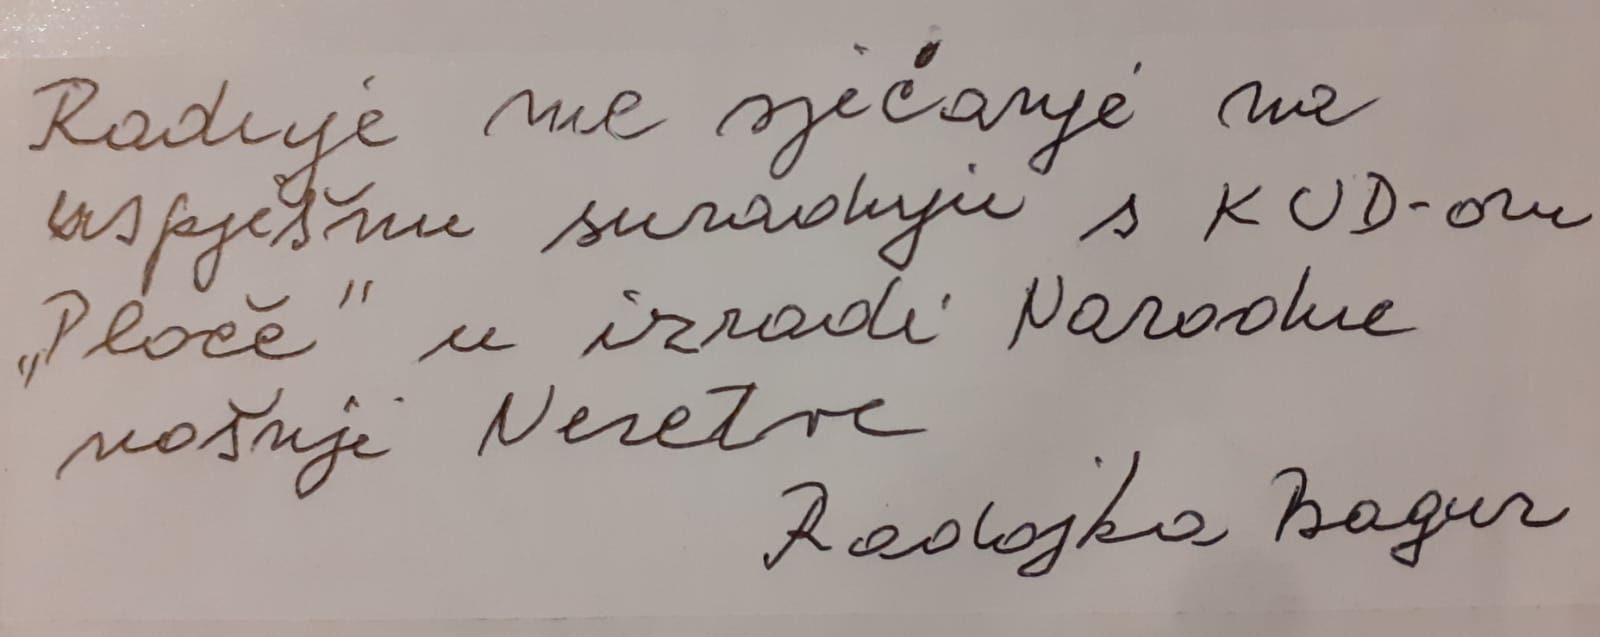 Raduje me sjećanje na
uspješnu suradnju s KUD-om
„Ploče" u izradi Narodne
nošnji Neretve
Radojka Bagur